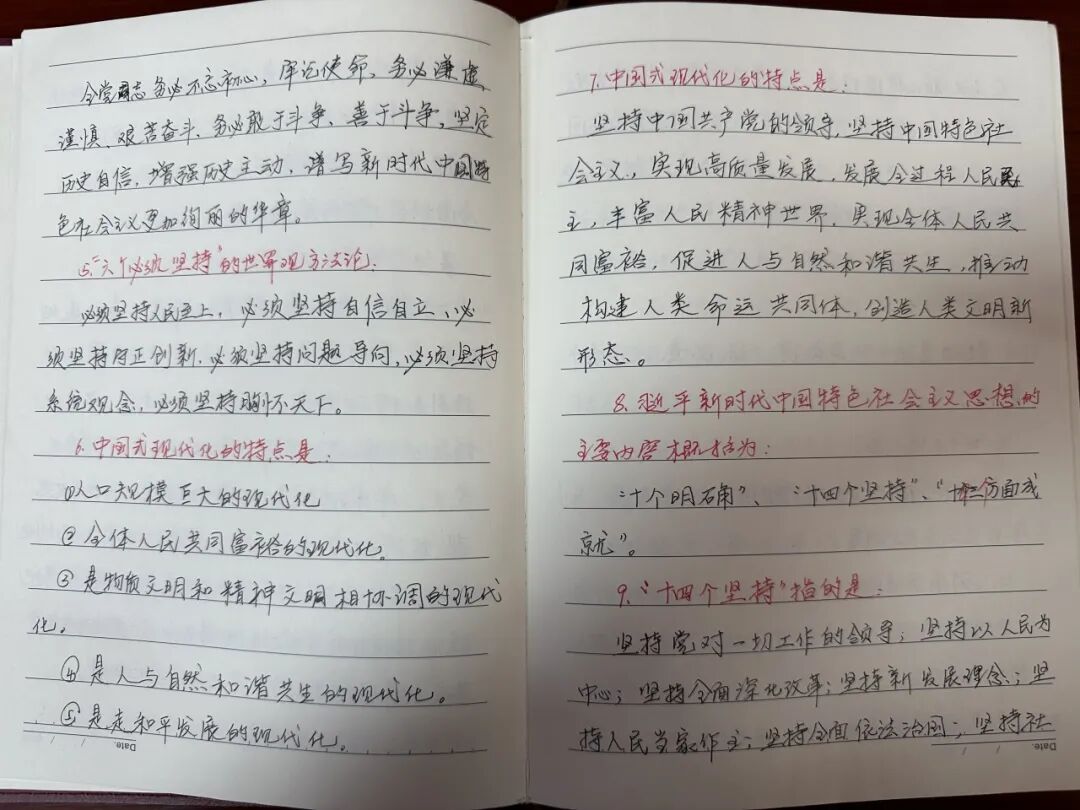 全党同志务必不忘初心、牢记使命、务必谦虚
谨慎、艰苦奋斗、务必敢于斗争、善于斗争,坚定
历史自信,增强历史主动,谱写新时代中国特
色社会主义更加绚丽的华章。
5.“六个必须坚持”的世界观方法论:
必须坚持人民至上,必须坚持自信自立、必
须坚持守正创新.必须坚持问题导向,必须坚持
系统观念,必须坚持胸怀天下。
6.中国式现代化的特点是:
①人口规模巨大的现代化
②全体人民共同富裕的现代化。
③是物质文明和精神文明相协调的现代
化。
④是人与自然和谐共生的现代化。
⑤是走和平发展的现代化。
Date.
7.中国式现代化的特点是:
坚持中国共产党的领导,坚持中国特色社
会主义,实现高质量发展,发展全过程人民民
主,丰富人民精神世界,实现全体人民共
同富裕,促进人与自然和谐共生,推动
构建人类命运共同体,创造人类文明新
形态。
8.习近平新时代中国特色社会主义思想的
主要内容概括为:
“十个明确”、“十四个坚持”、“十三个方面成
就”。
9.“十四个坚持”指的是:
坚持党对一切工作的领导;坚持以人民为
中心;坚持全面深化改革;坚持新发展理念;坚
持人民当家作主;坚持全面依法治国;坚持社
Date.